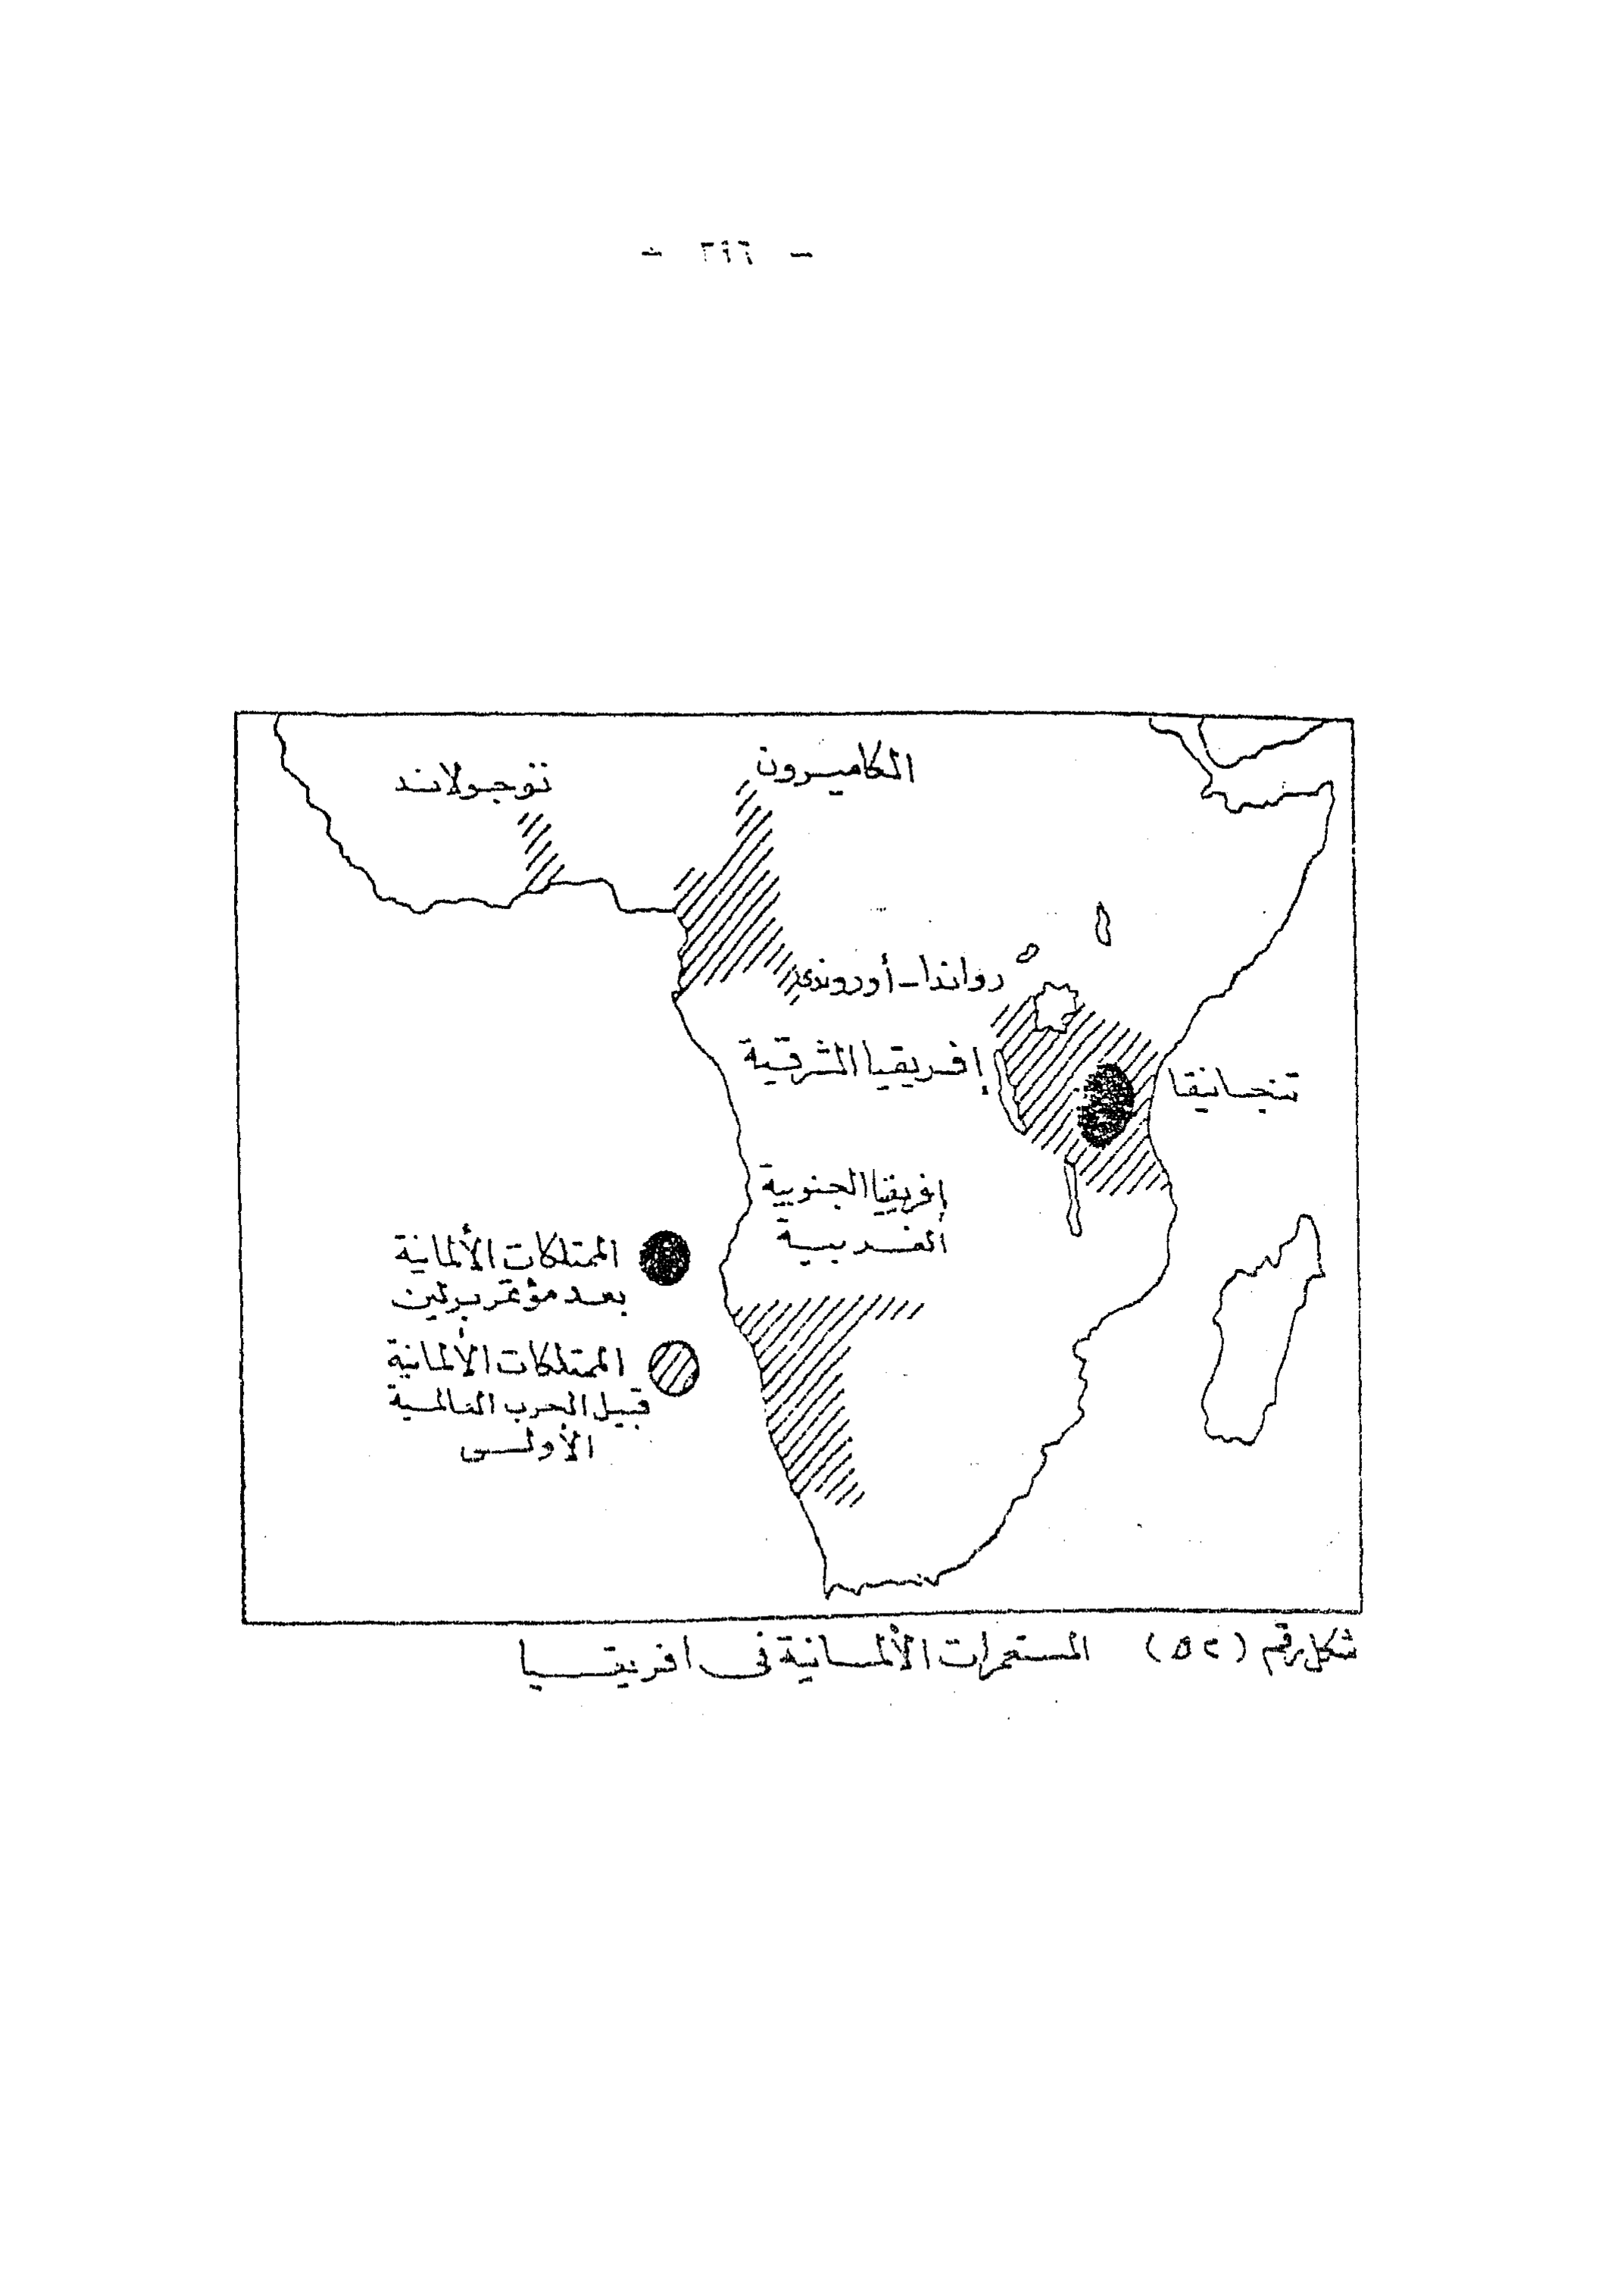 - ٣٩٦ -
الكاميرون
توجولاند
رواندا - أوروندى
إفريقيا الشرقية
تنجانيقا
إفريقيا الجنوبية
الغربية
الممتلكات الألمانية
بعد مؤتمر برلين
الممتلكات الألمانية
قبيل الحرب العالمية
الأولى
شكل رقم (٥٢) المستعمرات الألمانية فى افريقيا